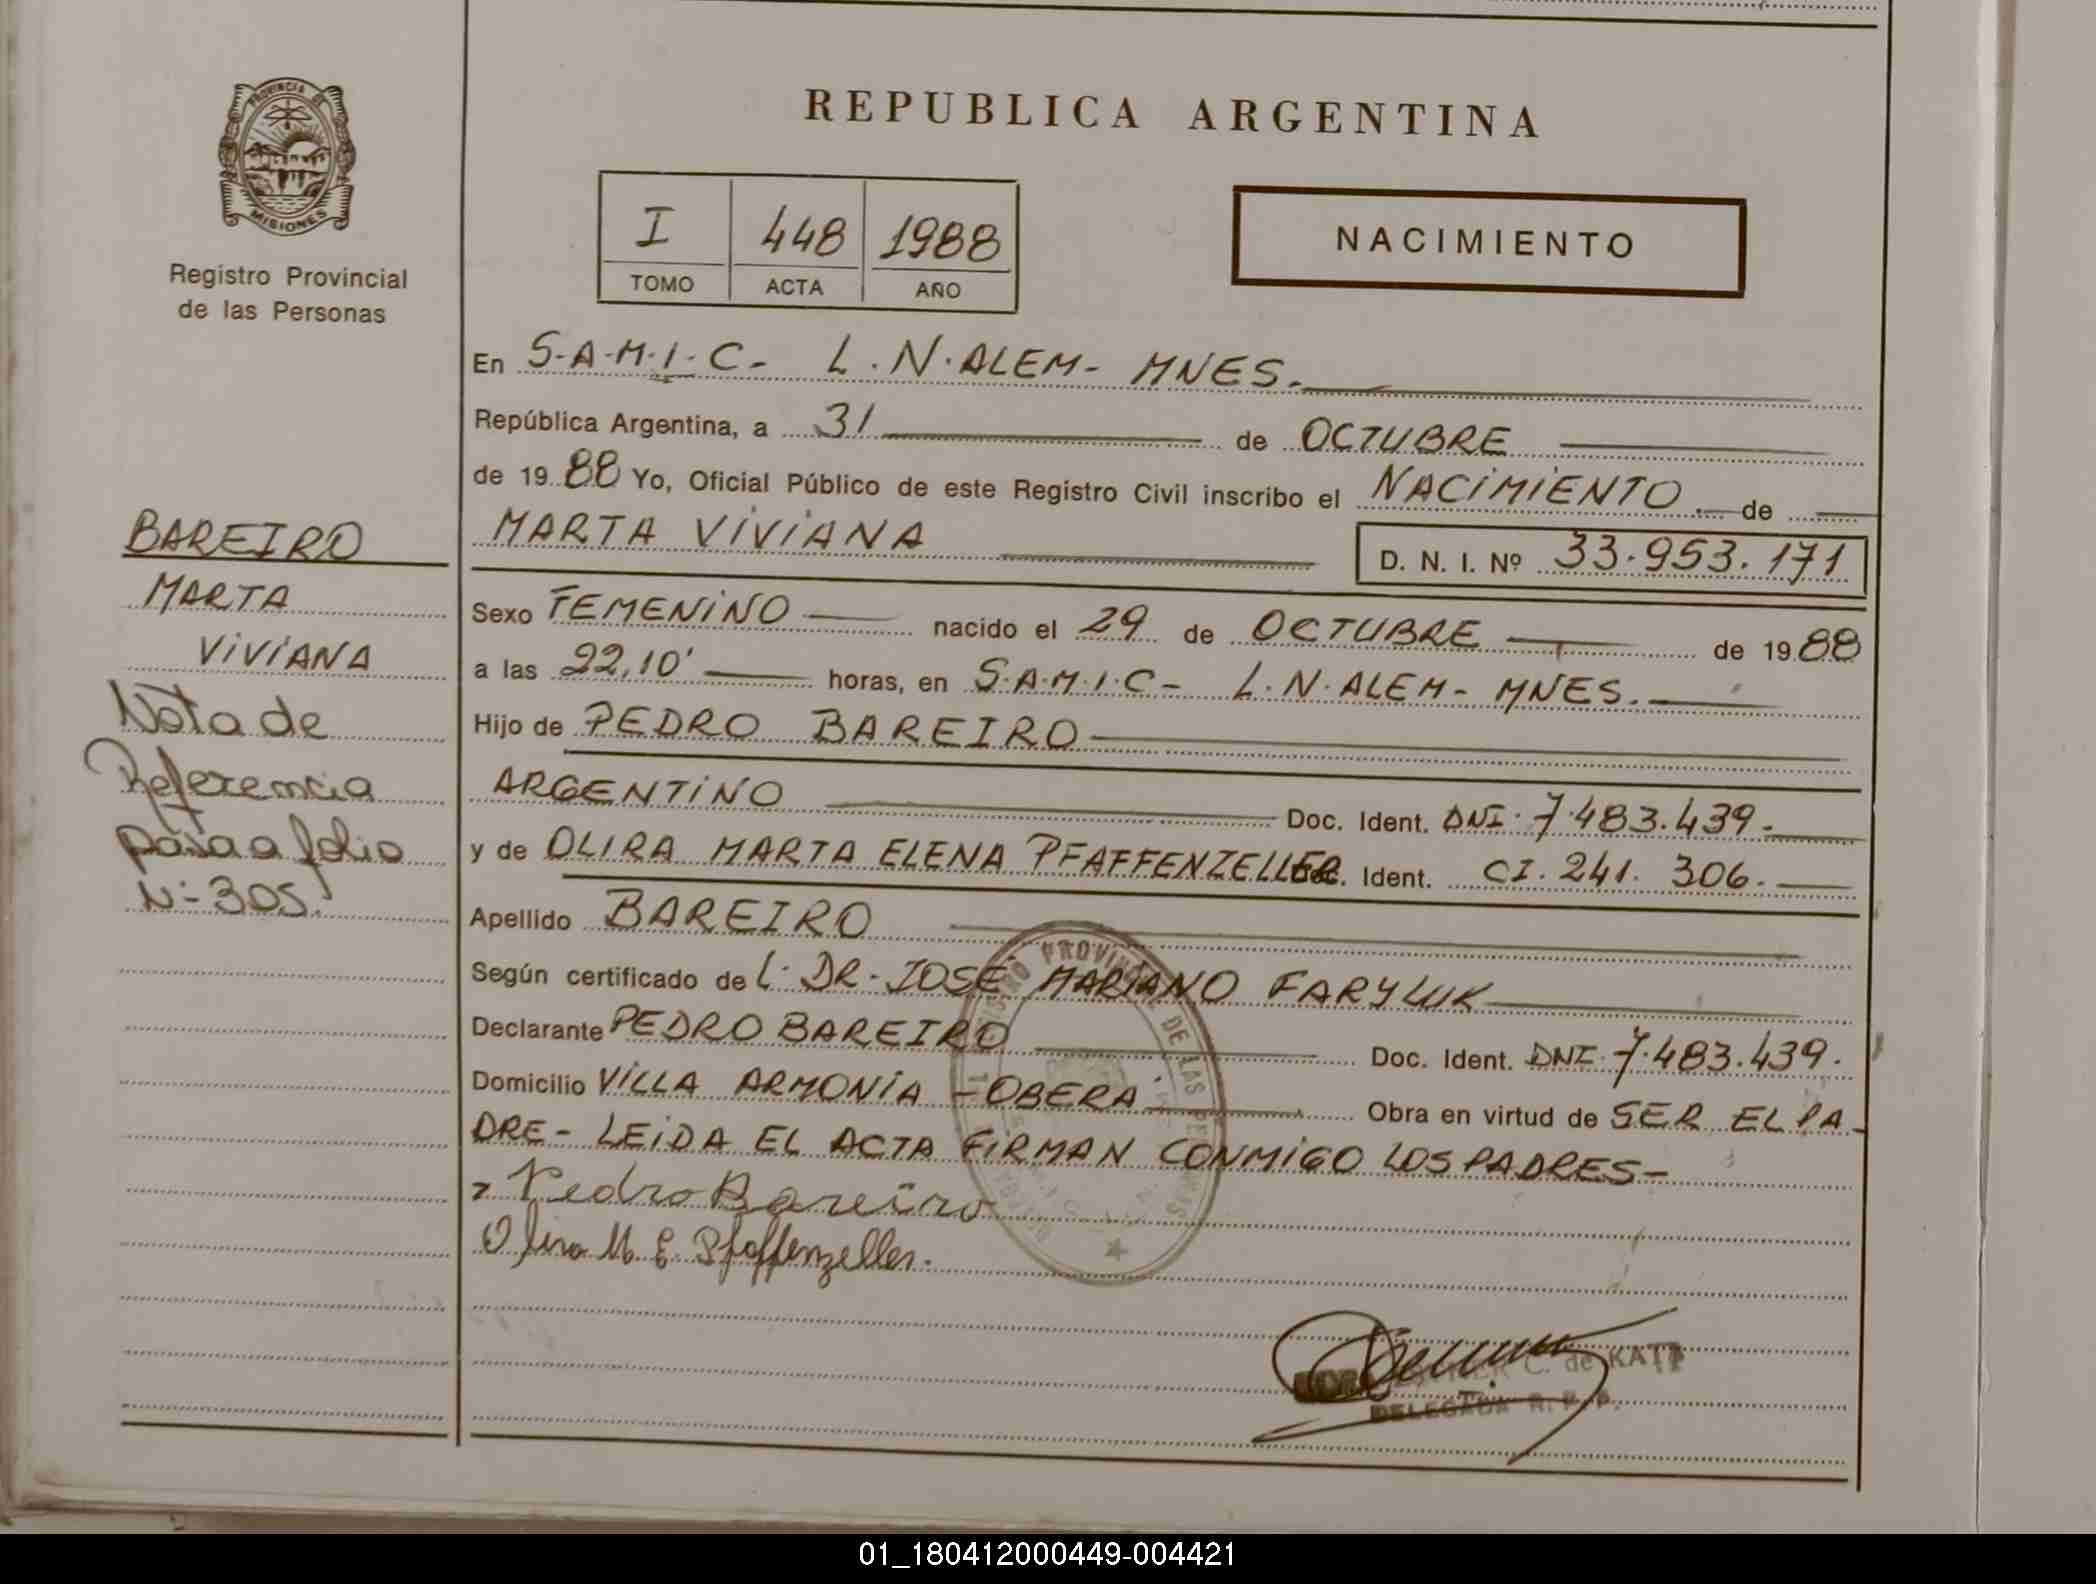 REPUBLICA ARGENTINA
PROVINCIA DE
MISIONES
Registro Provincial
de las Personas
I 448 1988
TOMO ACTA AÑO
NACIMIENTO
En S.A.M.I.C- L.N.ALEM- MNES.
República Argentina, a 31 de OCTUBRE
de 1988 Yo, Oficial Público de este Registro Civil inscribo el NACIMIENTO de
MARTA VIVIANA D. N. I. Nº 33.953.171
BAREIRO
MARTA
VIVIANA
Nota de
Referencia
pasa a folio
Nº 305.
Sexo FEMENINO nacido el 29 de OCTUBRE de 1988
a las 22,10' horas, en S.A.M.I.C- L.N.ALEM- MNES.
Hijo de PEDRO BAREIRO
ARGENTINO Doc. Ident. DNI. 7.483.439.-
y de OLIRA MARTA ELENA PFAFFENZELLER Doc. Ident. CI. 241. 306.-
Apellido BAREIRO
Según certificado de L. DR- JOSÉ MARIANO FARYLUK
Declarante PEDRO BAREIRO Doc. Ident. DNI. 7.483.439.
Domicilio VILLA ARMONIA - OBERA Obra en virtud de SER EL PA-
DRE- LEIDA EL ACTA FIRMAN CONMIGO LOS PADRES-
Pedro Bareiro
Olira M E Pfaffenzeller.
PROVINCIAL DE LAS
C. de KATZ
DELEGADA R. P. P.
01_180412000449-004421